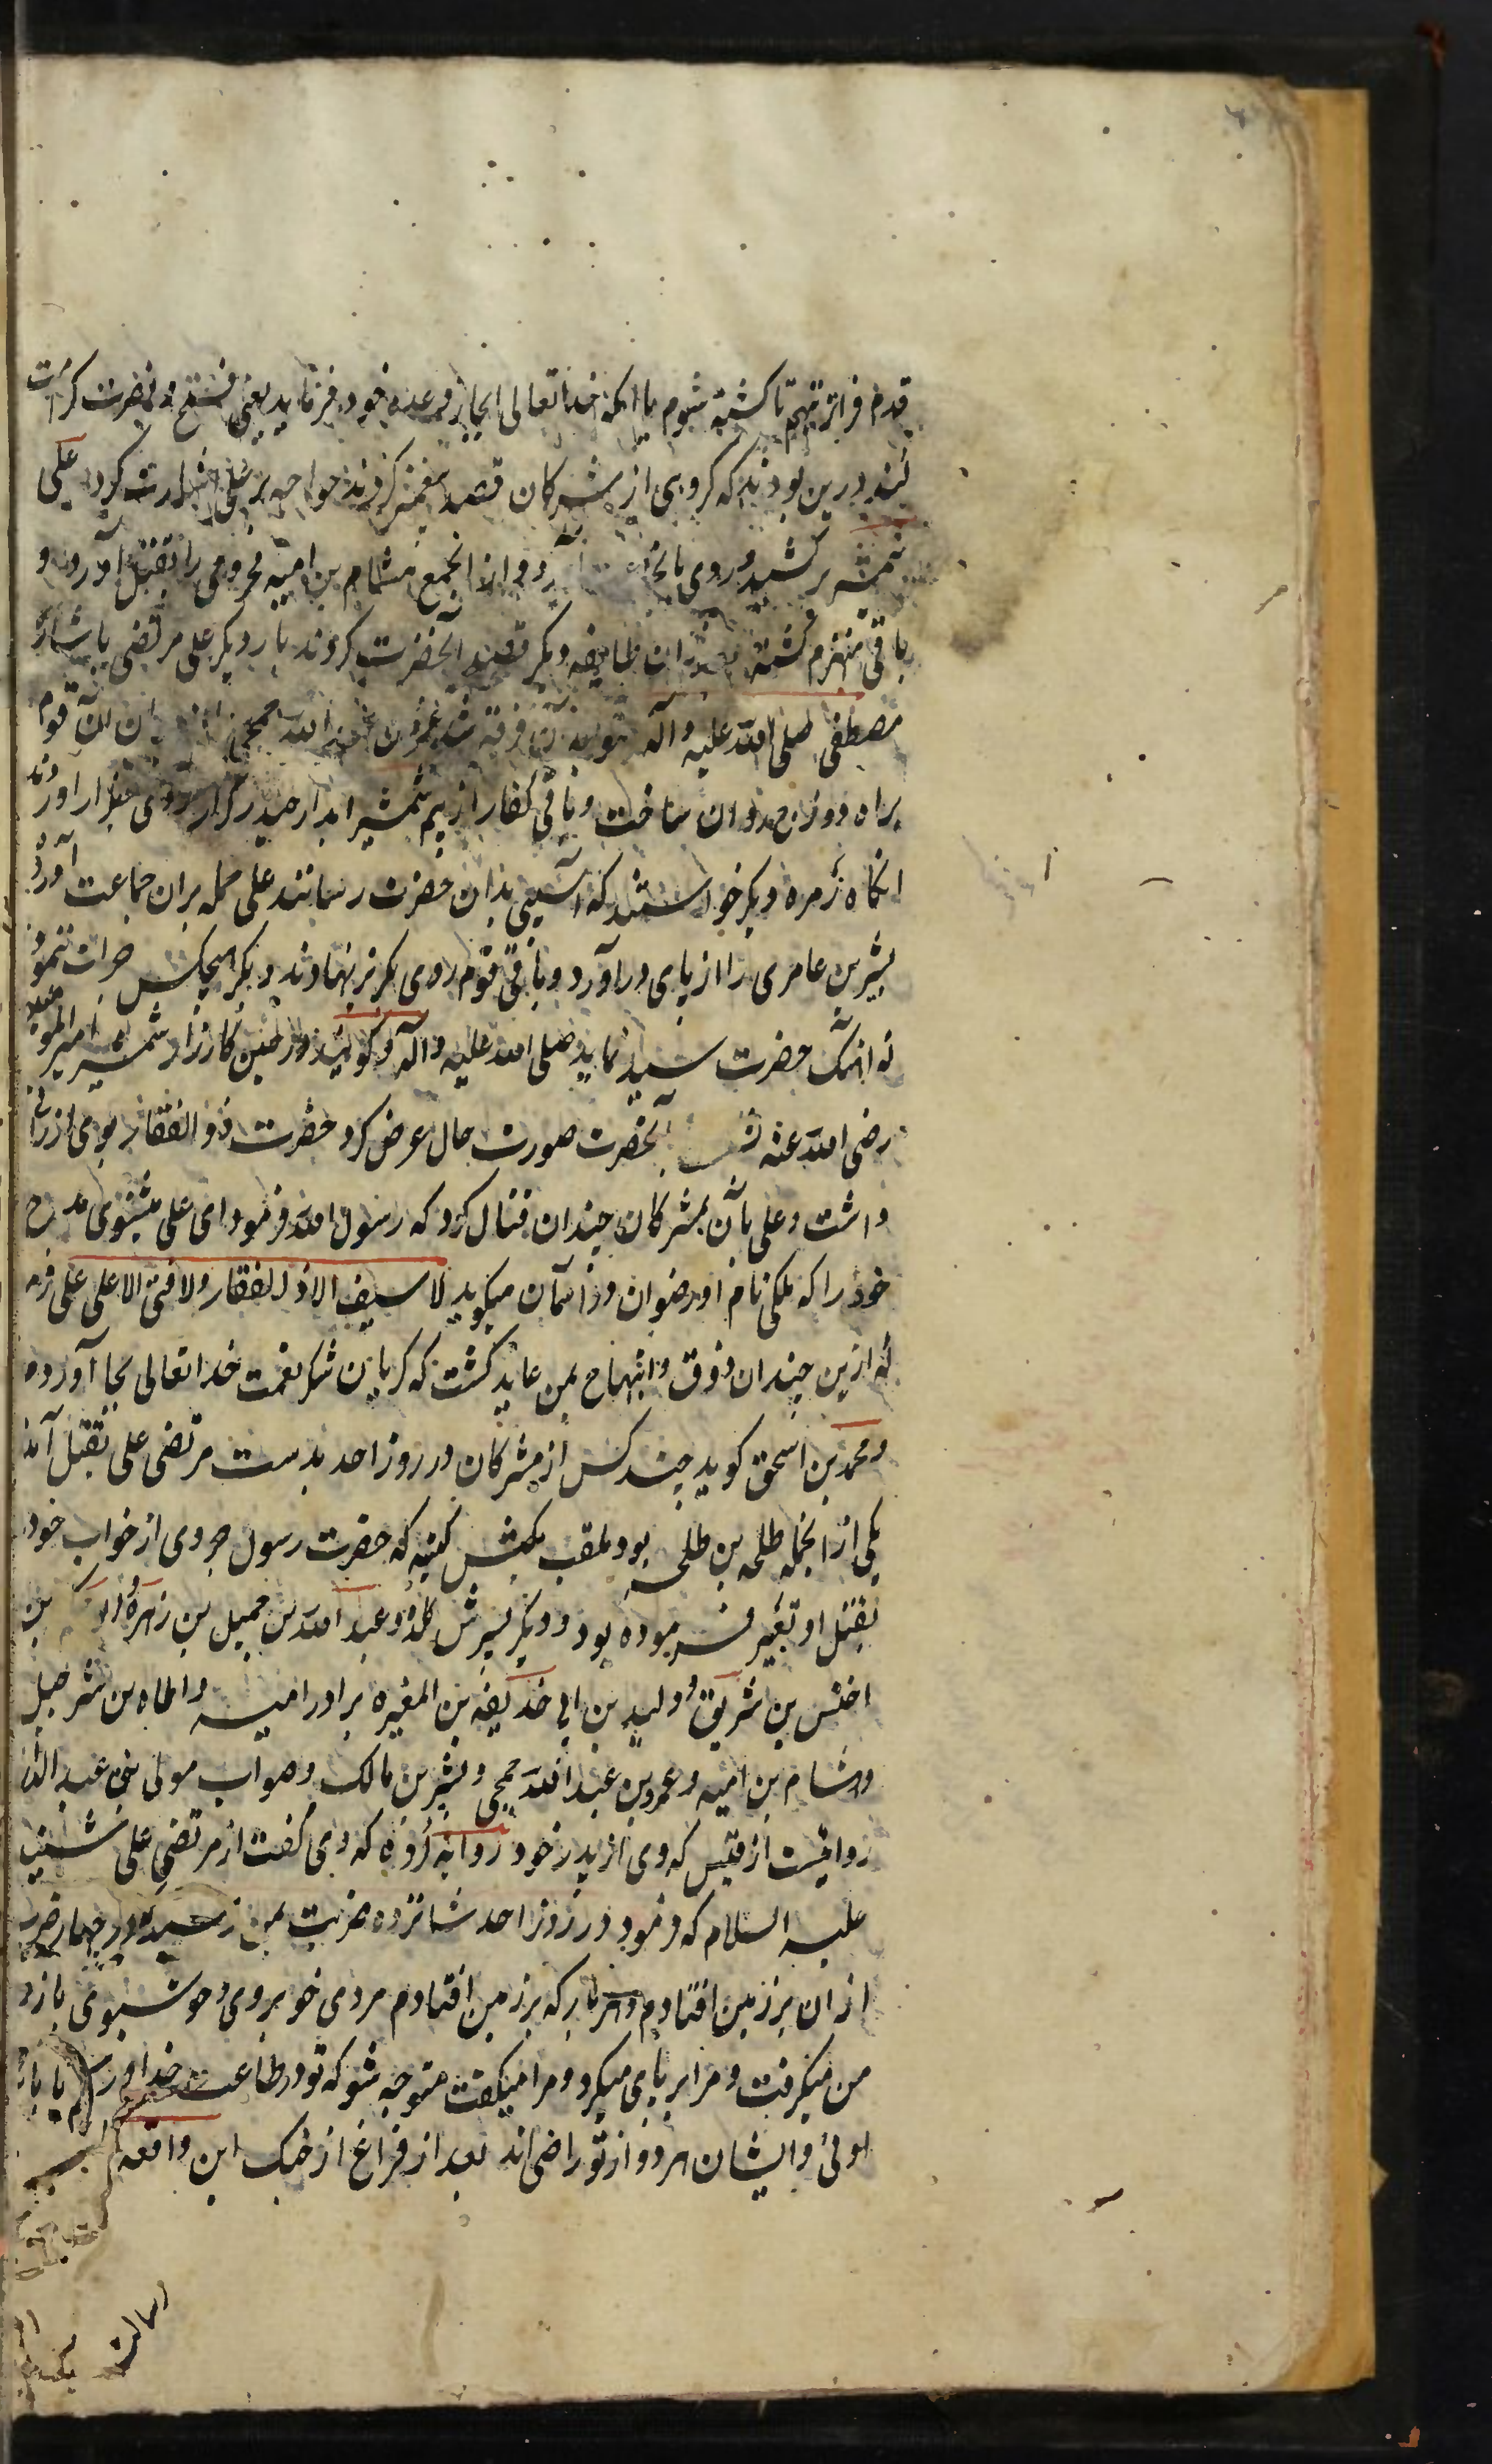 قدم فراتر نهم تا کشته شوم یا آنکه خداتعالی انجاز وعده خود فرماید یعنی فتح و نصرت کرامت
کند درین بودند که گروهی از مشرکان قصد پیغمبر کردند خواجه بعلی اشارت کرد علی
شمشیر برکشید و روی با و از انجمع هشام بن امیه مخزومی را بقتل آورد و
باقی منهزم گشته بعد از ان طایفه دیگر قصد آنحضرت کردند بار دیگر علی مرتضی باشارت
مصطفی صلی الله علیه وآله متوجه آن فرقه شد عمرو بن عبد الله جمحی را از میان آن قوم
براه دوزخ روان ساخت و باقی کفار از بیم شمشیر ابدار حیدر کرار روی بفرار آوردند
انگاه زمره دیگر خواستند که آسیبی بدان حضرت رسانند علی حمله بران جماعت آورد و
بشر بن عامری را از پای درآورد و باقی قوم روی بگریز نهادند دیگر هیچکس جرات ننمود
که اهنگ حضرت سید نماید صلی الله علیه وآله و گویند در حین کارزار شمشیر امیر المومنین
رضی الله عنه بآنحضرت صورت حال عرض کرد حضرت ذو الفقار بوی ارزانی
داشت و علی بآن بمشرکان چندان قتال کرد که رسول الله فرمود ای علی میشنوی مدح
خود را که ملکی نام او رضوان در آسمان میگوید لا سیف الا ذو الفقار ولا فتی الا علی علی فرمود
که ازین چندان ذوق و ابتهاج بمن عاید گشت که گریان شکر نعمت خداتعالی بجا آورده
و محمد بن اسحق گوید چند کس از مشرکان در روز احد بدست مرتضی علی بقتل آمدند
یکی از انجمله طلحه بن طلحه بود ملقب بکبش کتیبه که حضرت رسول جزوی از خواب خود
بقتل او تعبیر فرموده بود و دیگر پسرش کلده و عبد الله بن جمیل بن زهره و ابو الحکم بن
اخنس بن شریق و ولید بن ابی حذیفه بن المغیره برادر امیه وارطاه بن شرحبیل
وهشام بن امیه و عمرو بن عبد الله جمحی و بشر بن مالک و صواب مولی بنی عبد الدار
روایتست از قیس که وی از پدر خود روایه کرده که وی گفت از مرتضی علی شنیدم
علیه السلام که فرمود در روز احد شانزده ضربت بمن رسیده در چهار ضرب
از ان بر زمین افتادم و هربار که بر زمین افتادم مردی خوبروی و خوشبوی بازو
من میگرفت و مرا برپای میکرد و مرا میگفت متوجه شو که تو در طاعت خدا و رسول
اوئی وایشان هر دو از تو راضی اند بعد از فراغ از جنک این واقعه